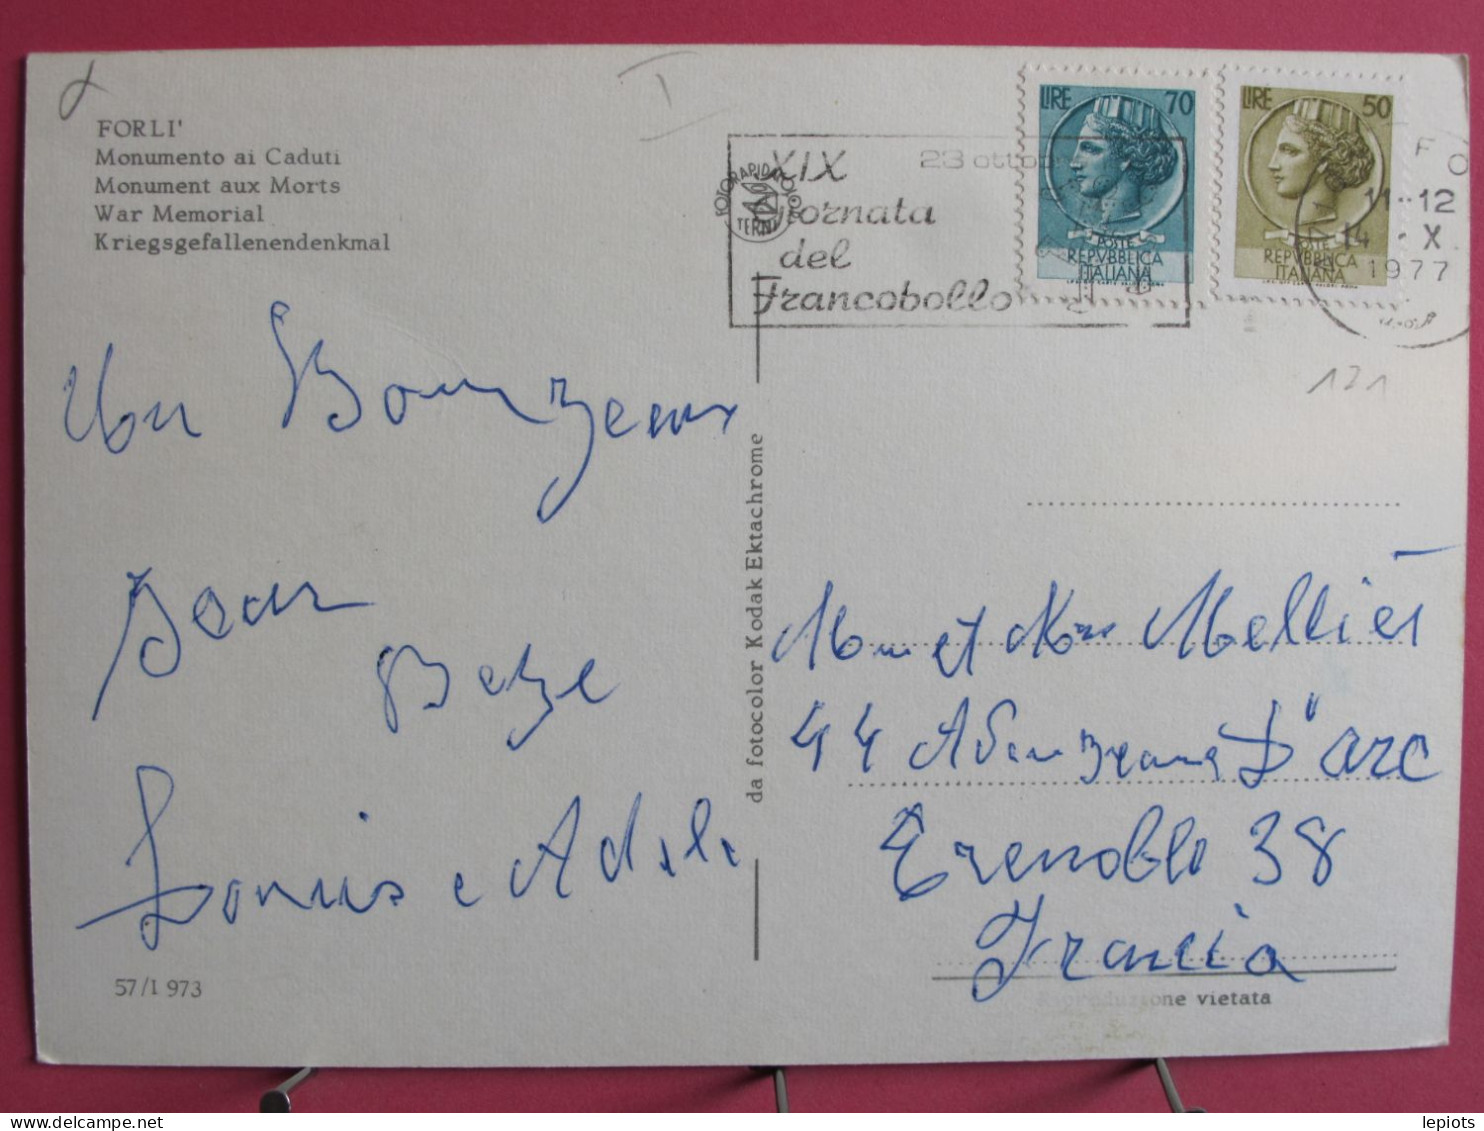 FORLI'
Monumento ai Caduti
Monument aux Morts
War Memorial
Kriegsgefallenendenkmal
XIX
Giornata
del
Francobollo
23 ottobre
FOTORAPIDACOLOR
TERNI
LIRE 70
POSTE
REPVBBLICA
ITALIANA
LIRE 50
POSTE
REPVBBLICA
ITALIANA
FO
11-12
14 X
1977
121
Un Bonzeur
Bear
Beze
Louis e Adele
57/1 973
da fotocolor Kodak Ektachrome
Mr et Mrs Mellier
44 A Jeanne D'arc
Grenoble 38
Francia
Riproduzione vietata
lepiots